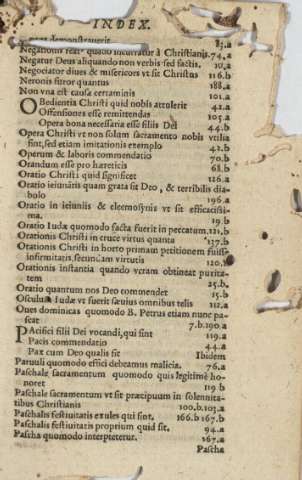 INDEX.
demonstrauerit. 83.a
Negationis reat quãdo incurratur à Christianis. 74.a
Negatur Deus aliquando non verbis sed factis, 10.a
Negociator diues & misericors vt sit Christus 116.b
Neronis fitor quantus 188.a
Non vna est causa certaminis 101.a
OBedientia Christi quid nobis attulerit 42.a
Offensiones esse remittendas 105.a
Opera bona necessaria esse filiis Dei 44.b
Opera Christi vt non solùm sacramento nobis vtilia
sint, sed etiam imitationis exemplo 42.b
Operum & laboris commendatio 70.b
Orandum esse pro hæreticis 68.b
Oratio Christi quid significet 126.a
Oratio ieiunãtis quam grata sit Deo, & terribilis dia-
bolo 196.a
Oratio in ieiuniis & eleemosynis vt sit efficacissi-
ma. 19.b
Oratio Iudæ quomodo facta fuerit in peccatum. 121.b
Orationis Christi in cruce virtus quanta 137.b
Orationis Christi in horto primam petitionem fuisse
infirmitatis, secundam virtutis 120.b
Orationis instantia quando veram obtineat purita-
tem 25.b.
Oratio quantum nos Deo commendet 15.b
Osculum Iudæ vt fuerit sæuius omnibus telis 112.a
Oues dominicas quomodo B. Petrus etiam nunc pa-
scat 7.b.190.a
PAcifici filii Dei vocandi, qui sint 119.a
Pacis commendatio 44.a
Pax cum Deo qualis sit Ibidem
Paruuli quomodo effici debeamus malicia. 76.a
Paschale sacramentum quomodo quis legitimè ho-
noret 119 b
Paschale sacramentum vt sit præcipuum in solennita-
tibus Christianis 100.b.103.a
Paschalis festiuitatis exules qui sint. 166.b 167.b
Paschalis festiuitatis proprium quid sit. 94.a
Pascha quomodo interpretetur. 167.a
Pascha